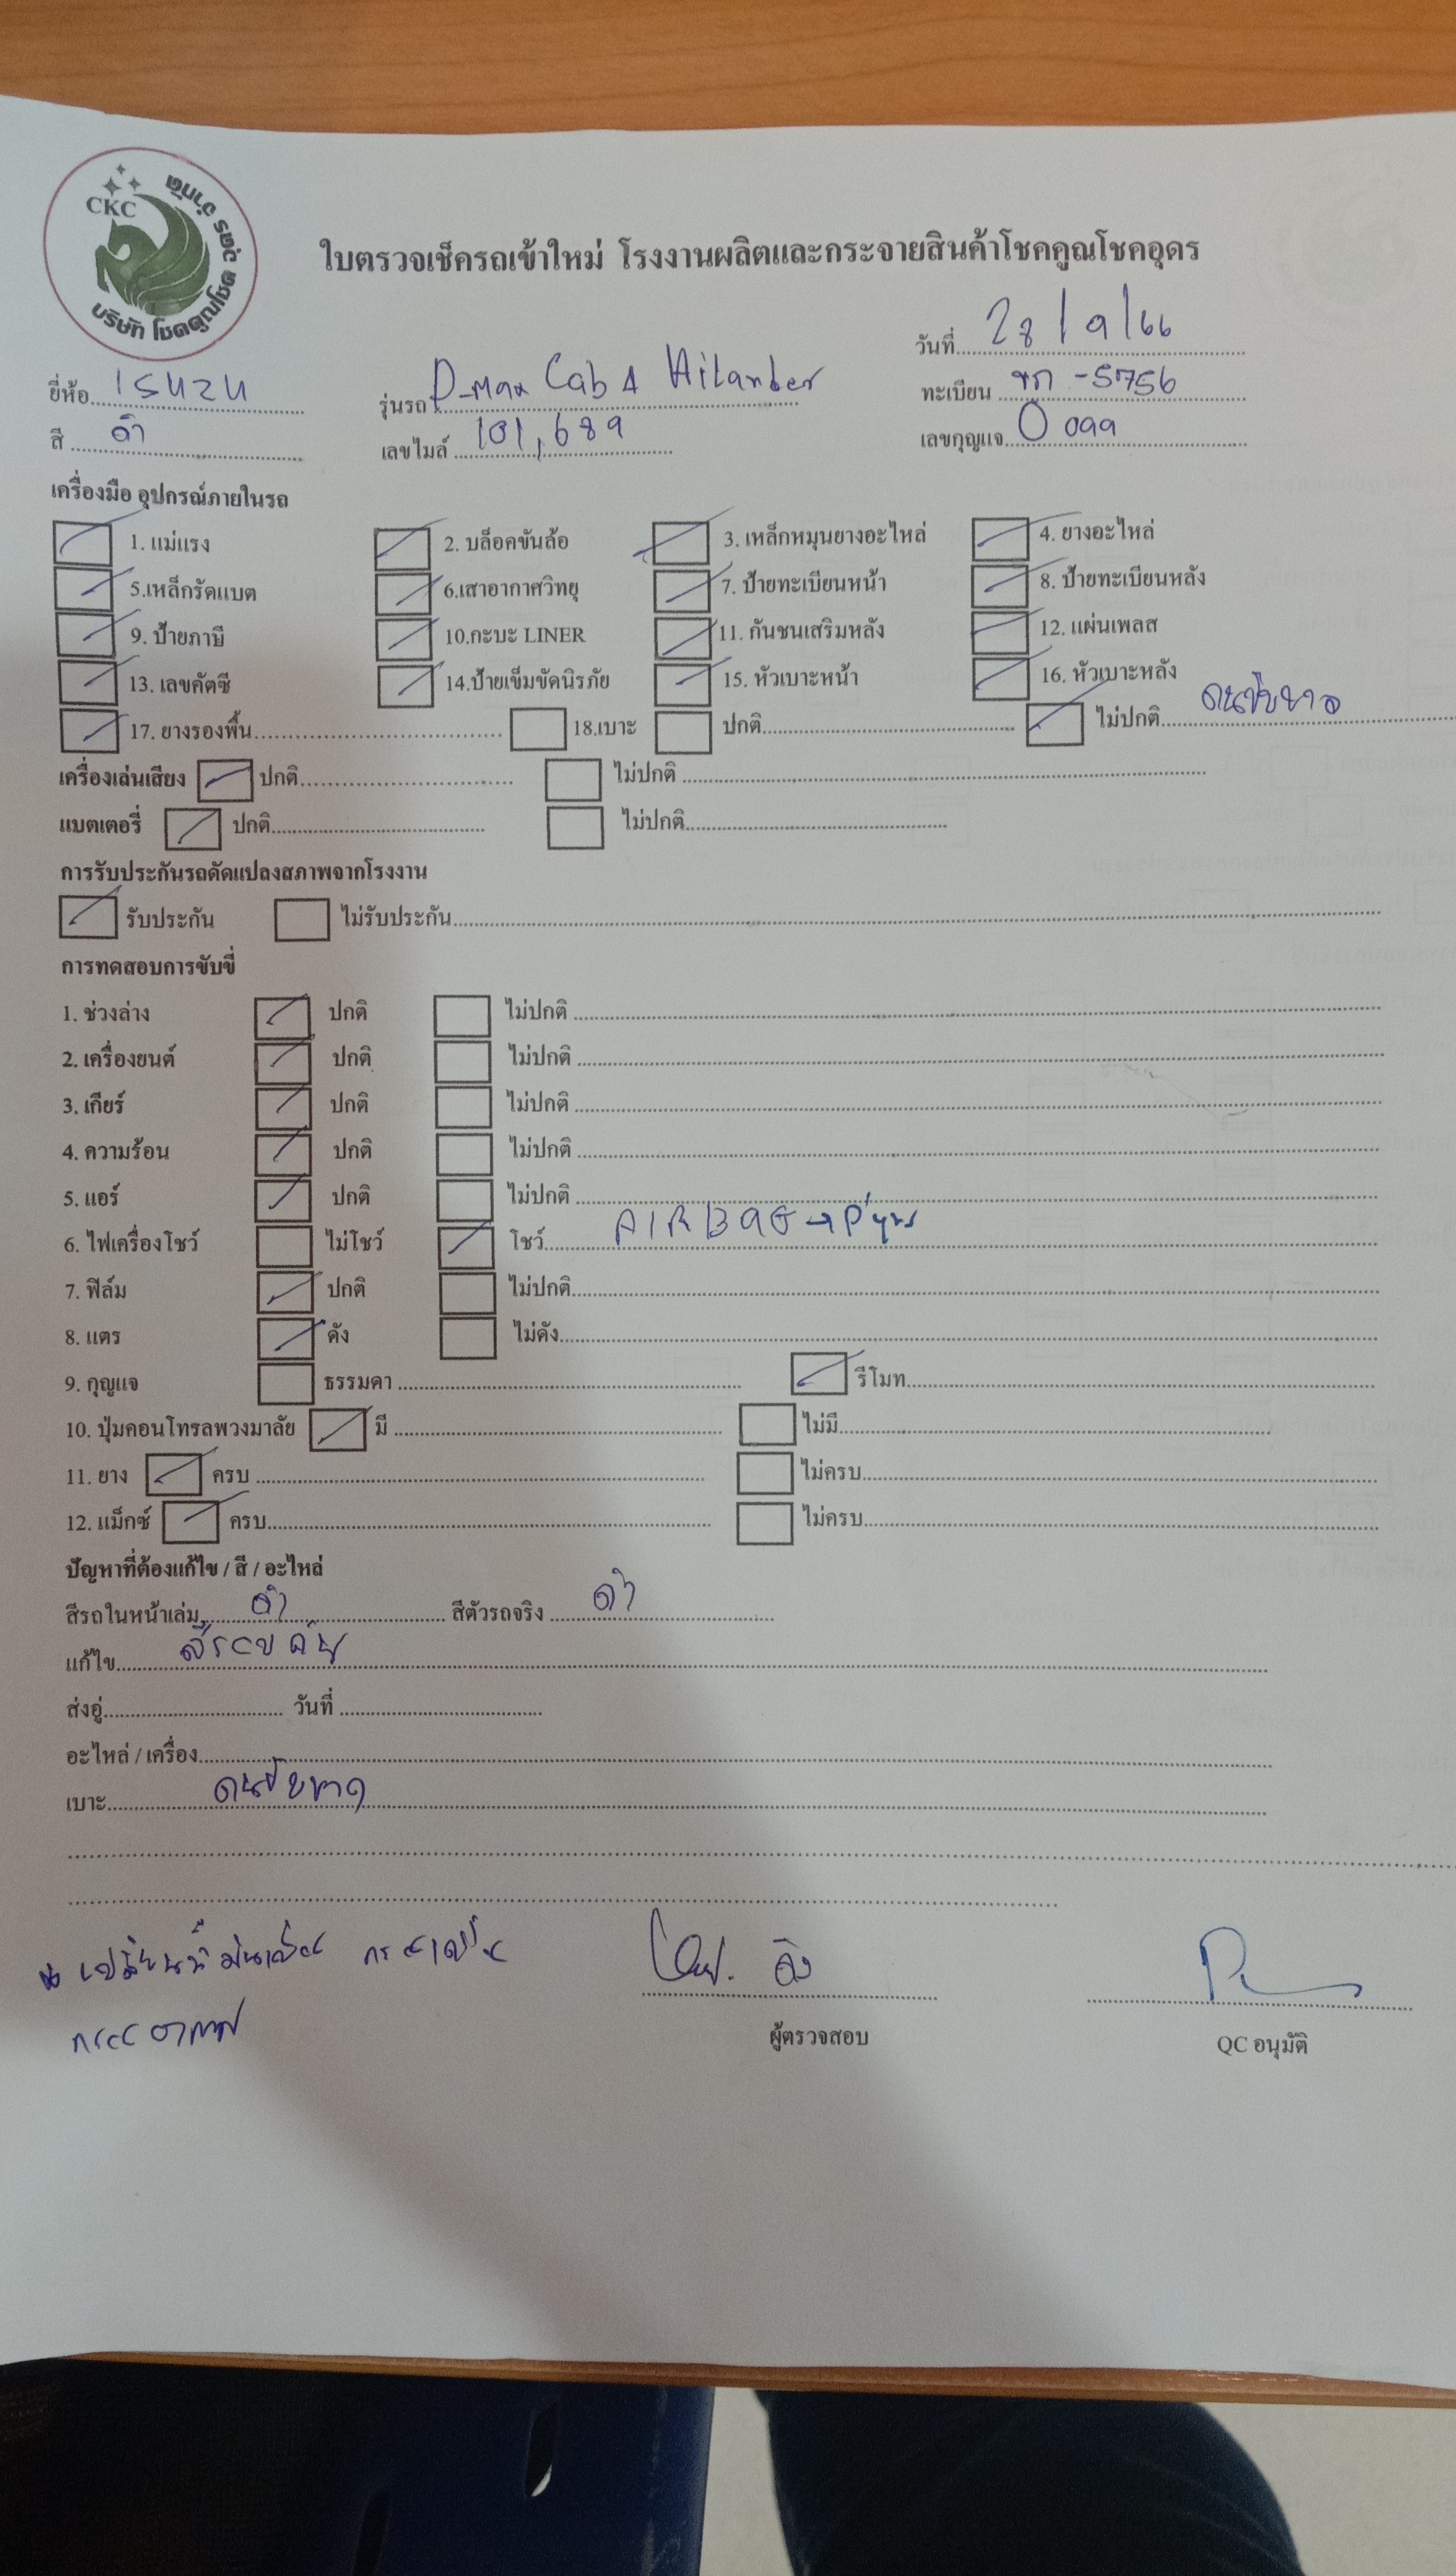 CKC
บริษัท โชคคูณโชค อุดร จำกัด
ใบตรวจเช็ครถเข้าใหม่ โรงงานผลิตและกระจายสินค้าโชคคูณโชคอุดร
วันที่ 28/9/66
ยี่ห้อ ISUZU รุ่นรถ D-max Cab 4 Hilander ทะเบียน -5756
สี ดำ เลขไมล์ 101,689 เลขกุญแจ 099
เครื่องมือ อุปกรณ์ภายในรถ
1. แม่แรง 2. บล็อคขันล้อ 3. เหล็กหมุนยางอะไหล่ 4. ยางอะไหล่
5.เหล็กรัดแบต 6.เสาอากาศวิทยุ 7. ป้ายทะเบียนหน้า 8. ป้ายทะเบียนหลัง
9. ป้ายภาษี 10.กะบะ LINER 11. กันชนเสริมหลัง 12. แผ่นเพลส
13. เลขคัตซี 14.ป้ายเข็มขัดนิรภัย 15. หัวเบาะหน้า 16. หัวเบาะหลัง
17. ยางรองพื้น 18.เบาะ ปกติ ไม่ปกติ คนขับขาด
เครื่องเล่นเสียง ปกติ ไม่ปกติ
แบตเตอรี่ ปกติ ไม่ปกติ
การรับประกันรถดัดแปลงสภาพจากโรงงาน
รับประกัน ไม่รับประกัน
การทดสอบการขับขี่
1. ช่วงล่าง ปกติ ไม่ปกติ
2. เครื่องยนต์ ปกติ ไม่ปกติ
3. เกียร์ ปกติ ไม่ปกติ
4. ความร้อน ปกติ ไม่ปกติ
5. แอร์ ปกติ ไม่ปกติ
6. ไฟเครื่องโชว์ ไม่โชว์ โชว์ AIRBAG →
7. ฟิล์ม ปกติ ไม่ปกติ
8. แตร ดัง ไม่ดัง
9. กุญแจ ธรรมดา รีโมท
10. ปุ่มคอนโทรลพวงมาลัย มี ไม่มี
11. ยาง ครบ ไม่ครบ
12. แม็กซ์ ครบ ไม่ครบ
ปัญหาที่ต้องแก้ไข / สี / อะไหล่
สีรถในหน้าเล่ม ดำ สีตัวรถจริง ดำ
แก้ไข สีรอบคัน
ส่งอู่ วันที่
อะไหล่ / เครื่อง
เบาะ คนขับขาด
เปลี่ยนน้ำมันเครื่อง กรองเครื่อง
กรองอากาศ
ผู้ตรวจสอบ QC อนุมัติ